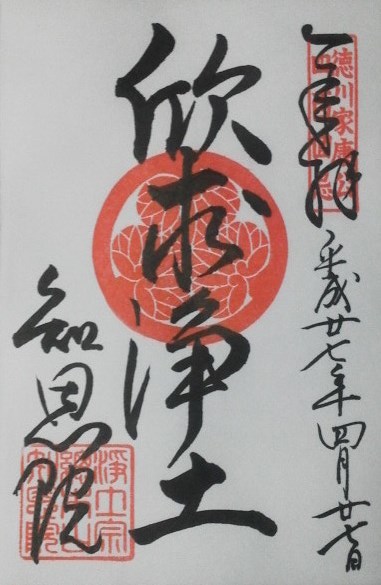 奉拝
平成廿七年四月廿七日
徳川家康公
四百回忌
欣求浄土
知恩院
浄土宗